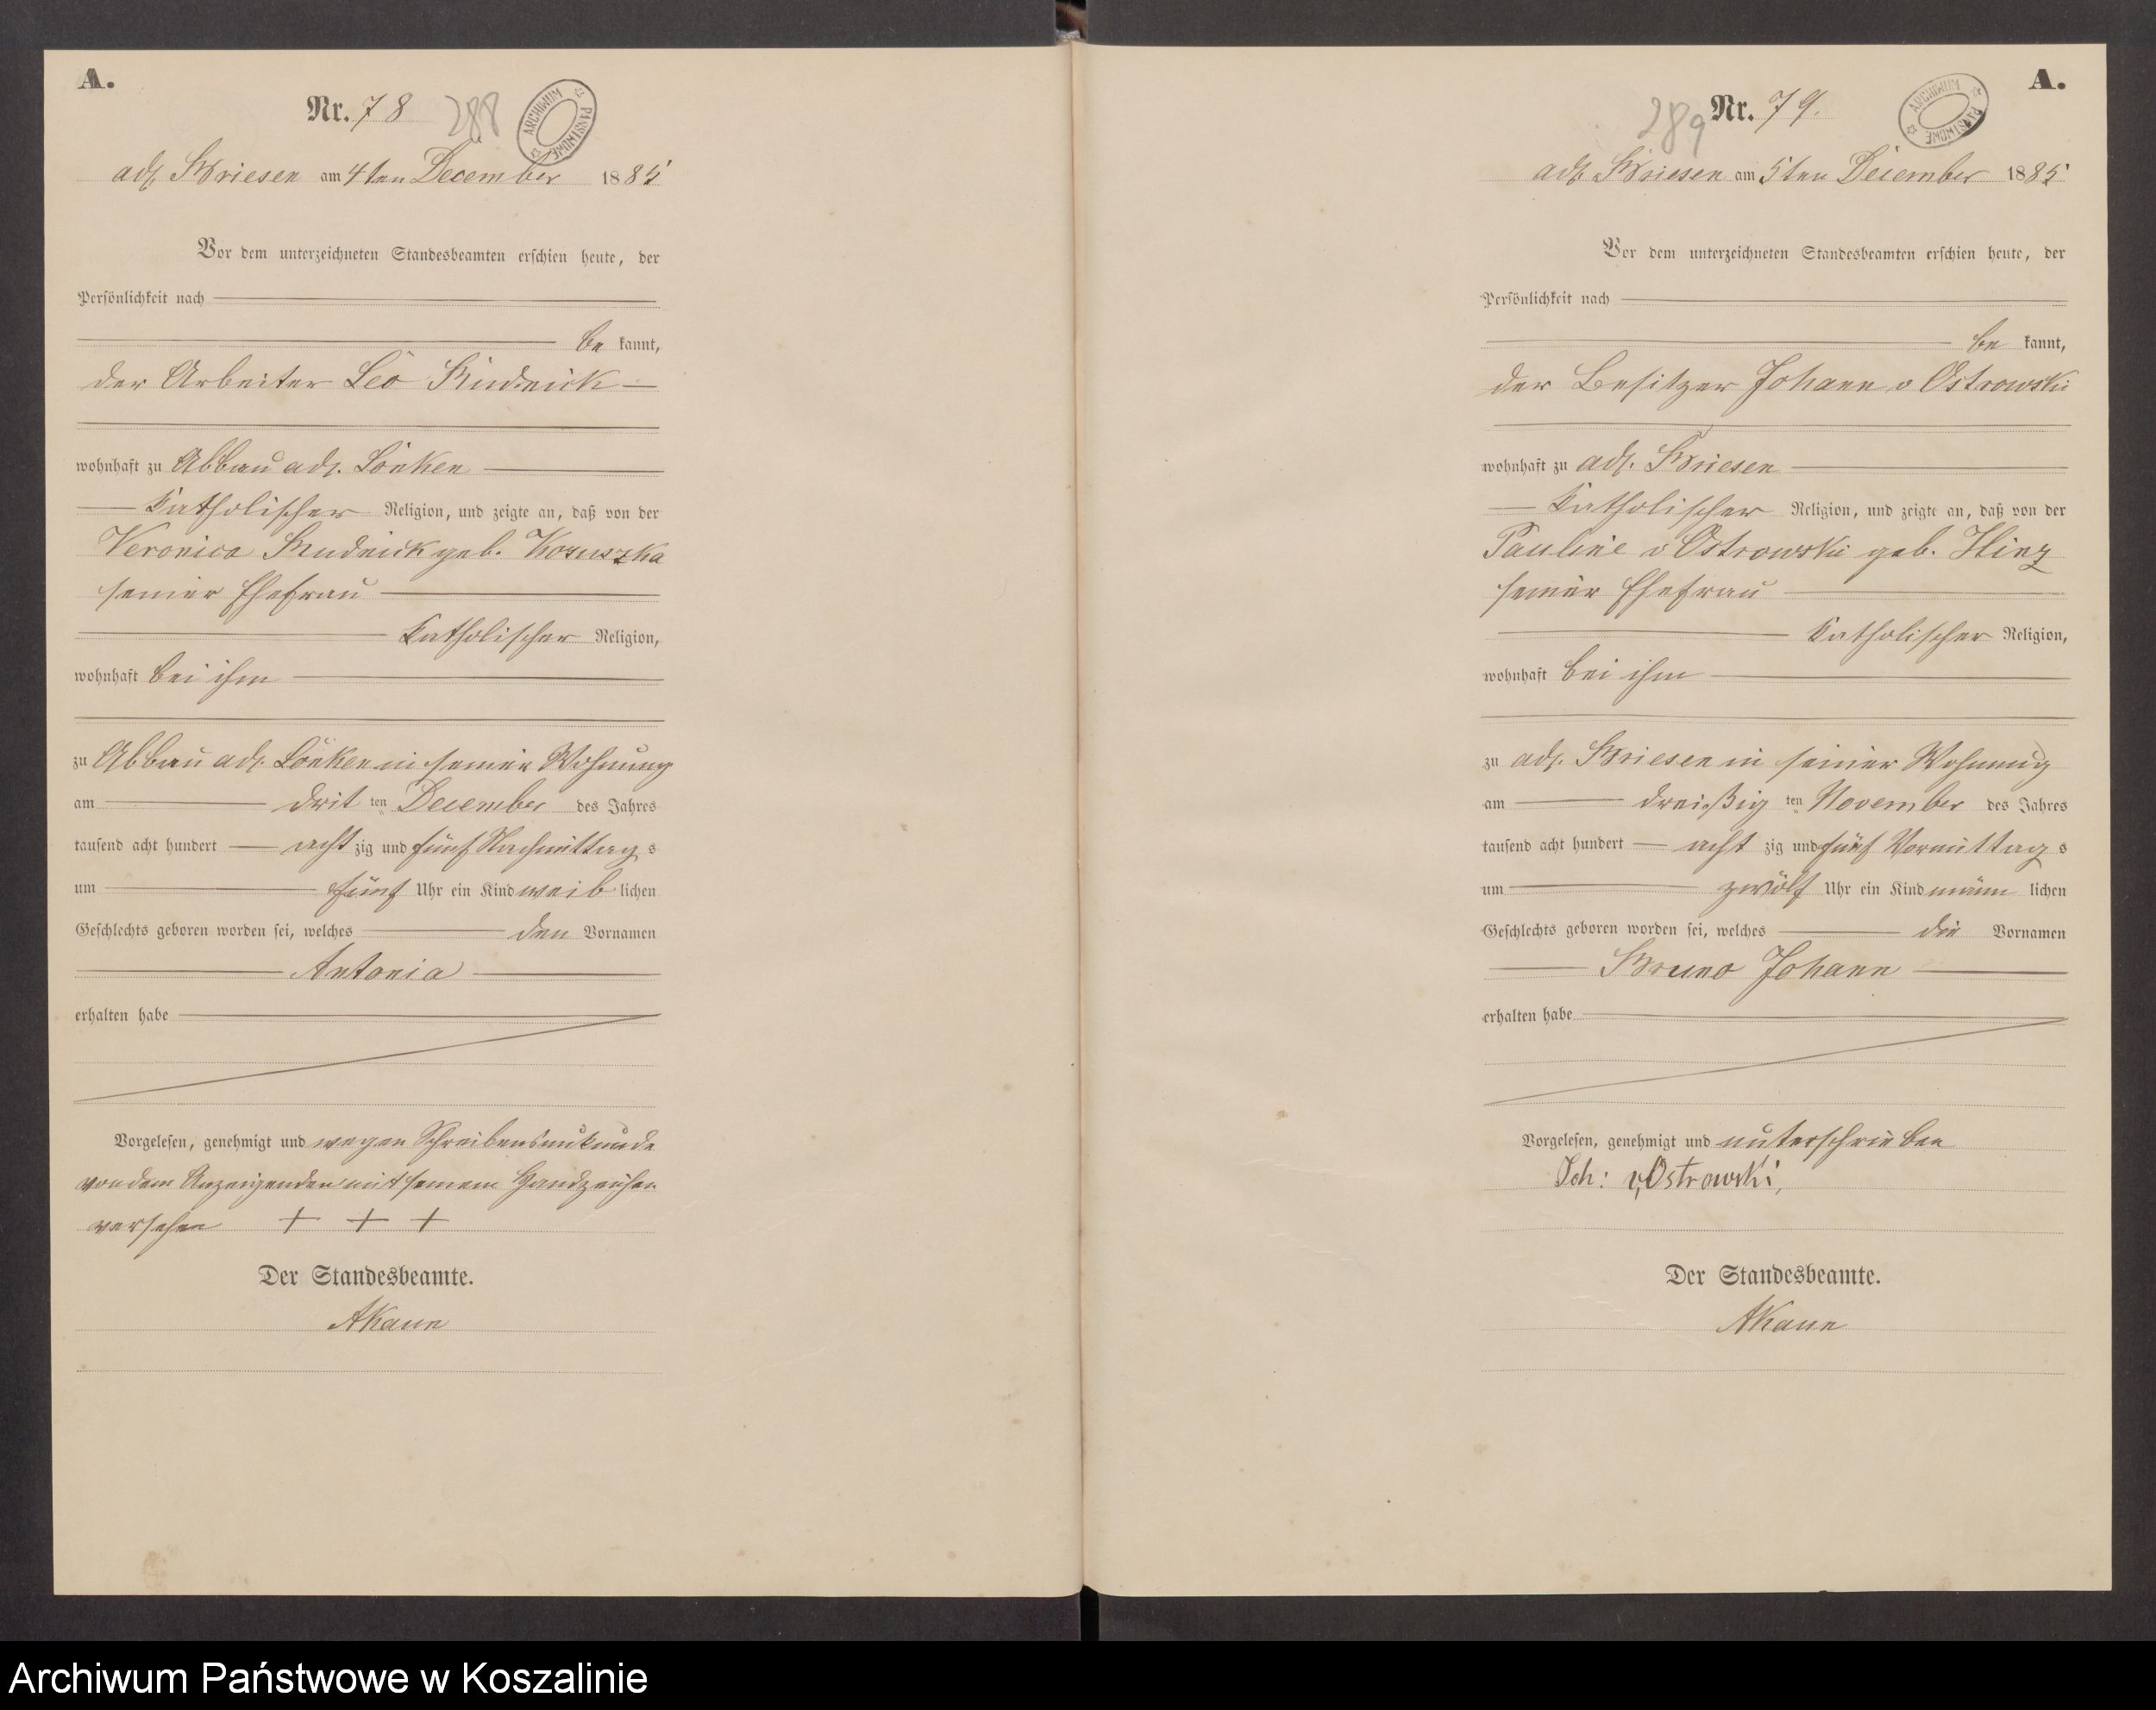 A.
Nr. 78 288
ARCHIWUM PAŃSTWOWE
adl. Briesen am 4ten December 1885
Vor dem unterzeichneten Standesbeamten erschien heute, der
Persönlichkeit nach
be kannt,
der Arbeiter Leo Rudnick
wohnhaft zu Abbau adl. Lonken
Katholischer Religion, und zeigte an, daß von der
Veronica Rudnick geb. Kosuszka
seiner Ehefrau
Katholischer Religion,
wohnhaft bei ihm
zu Abbau adl. Lonken in seiner Wohnung
am drit ten December des Jahres
tausend acht hundert acht zig und fünf Nachmittag s
um fünf Uhr ein Kind weib lichen
Geschlechts geboren worden sei, welches den Vornamen
Antonia
erhalten habe
Vorgelesen, genehmigt und wegen Schreibensunkunde
von dem Anzeigenden mit seinem Handzeichen
versehen + + +
Der Standesbeamte.
AKaun
A.
289 Nr. 79.
ARCHIWUM PAŃSTWOWE
adl. Briesen am 5ten December 1885
Vor dem unterzeichneten Standesbeamten erschien heute, der
Persönlichkeit nach
be kannt,
der Besitzer Johann v Ostrowski
wohnhaft zu adl. Briesen
Katholischer Religion, und zeigte an, daß von der
Pauline v Ostrowski geb. Hinz
seiner Ehefrau
Katholischer Religion,
wohnhaft bei ihm
zu adl. Briesen in seiner Wohnung
am dreißig ten November des Jahres
tausend acht hundert acht zig und fünf Vormittag s
um zwölf Uhr ein Kind männ lichen
Geschlechts geboren worden sei, welches die Vornamen
Bruno Johann
erhalten habe
Vorgelesen, genehmigt und unterschrieben
Joh: v, Ostrowski,
Der Standesbeamte.
AKaun
Archiwum Państwowe w Koszalinie